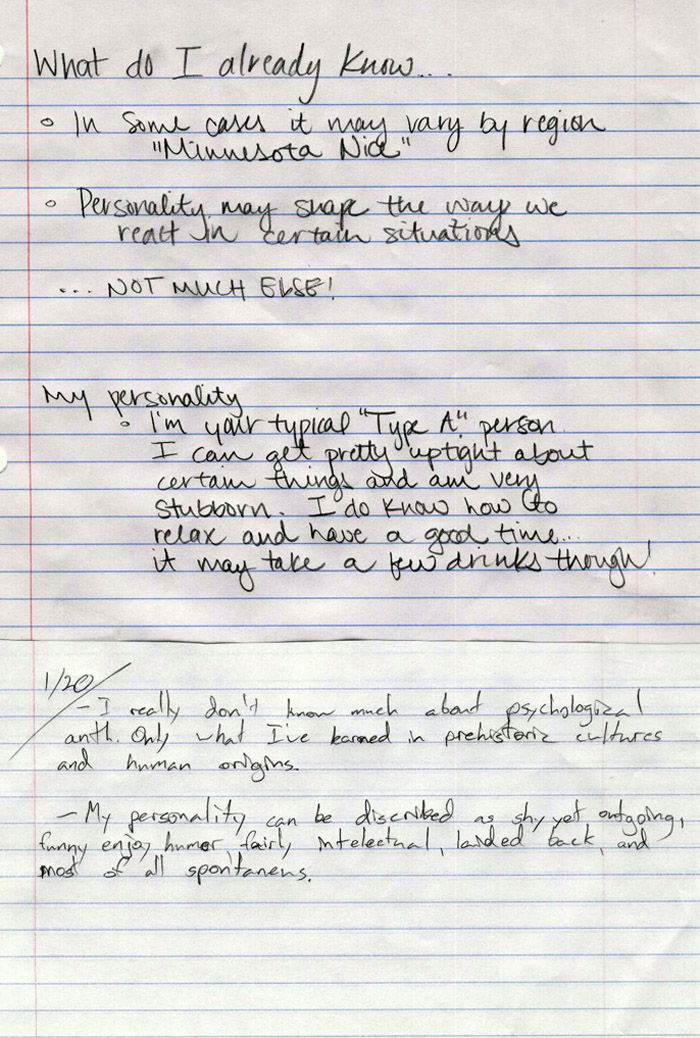 What do I already know...
° In some cases it may vary by region
"Minnesota Nice"
° Personality may shape the way we
react in certain situations
... NOT MUCH ELSE!
My personality
° I'm your typical "Type A" person.
I can get pretty uptight about
certain things and am very
stubborn. I do know how to
relax and have a good time...
it may take a few drinks though!
1/20
- I really don't know much about psychological
anth. Only what I've learned in prehistoric cultures
and human origins.
- My personality can be discribed as shy yet outgoing,
funny enjoy humor, fairly intelectual, laided back, and
most of all spontanens.